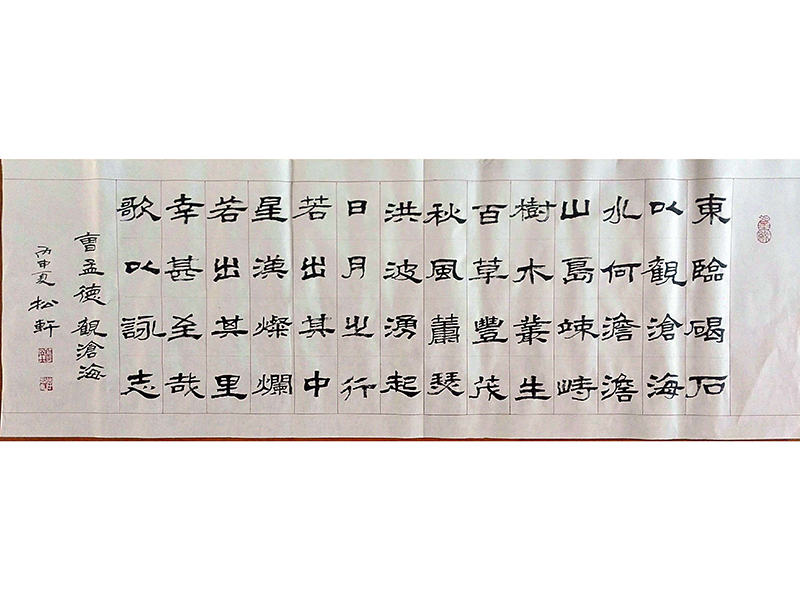 東臨碣石
以觀滄海
水何澹澹
山島竦峙
樹木叢生
百草豐茂
秋風蕭瑟
洪波湧起
日月之行
若出其中
星漢燦爛
若出其里
幸甚至哉
歌以詠志
曹孟德觀滄海
丙申夏松軒